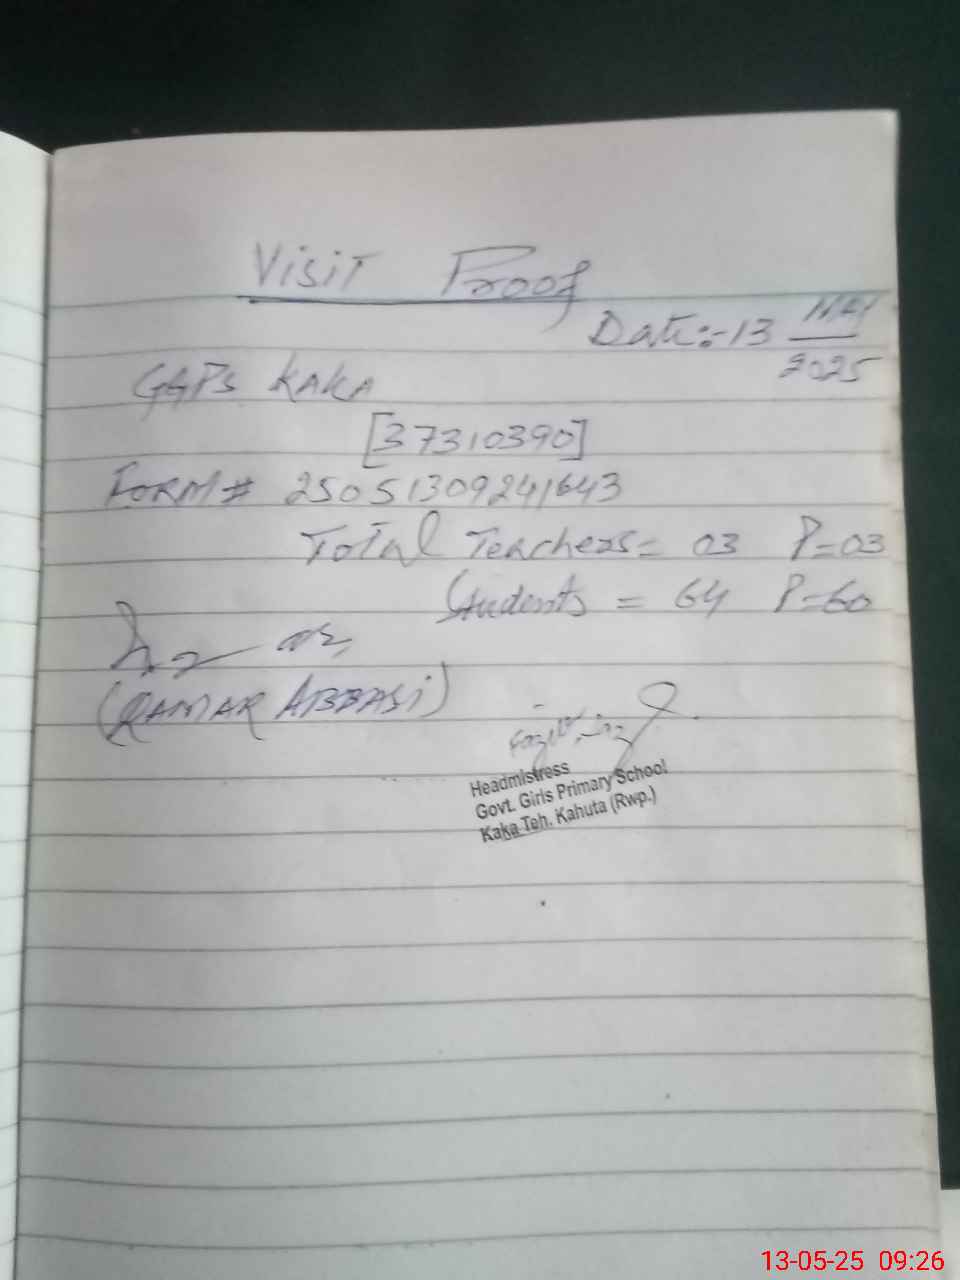 Visit Proof
Date:-13 MAY
2025
GGPS KAKA
[37310390]
FORM# 25051309241643
Total Teachers = 03 P=03
Students = 64 P=60
(QAMAR ABBASi)
Headmistress
Govt. Girls Primary School
Kaka Teh. Kahuta (Rwp.)
13-05-25 09:26